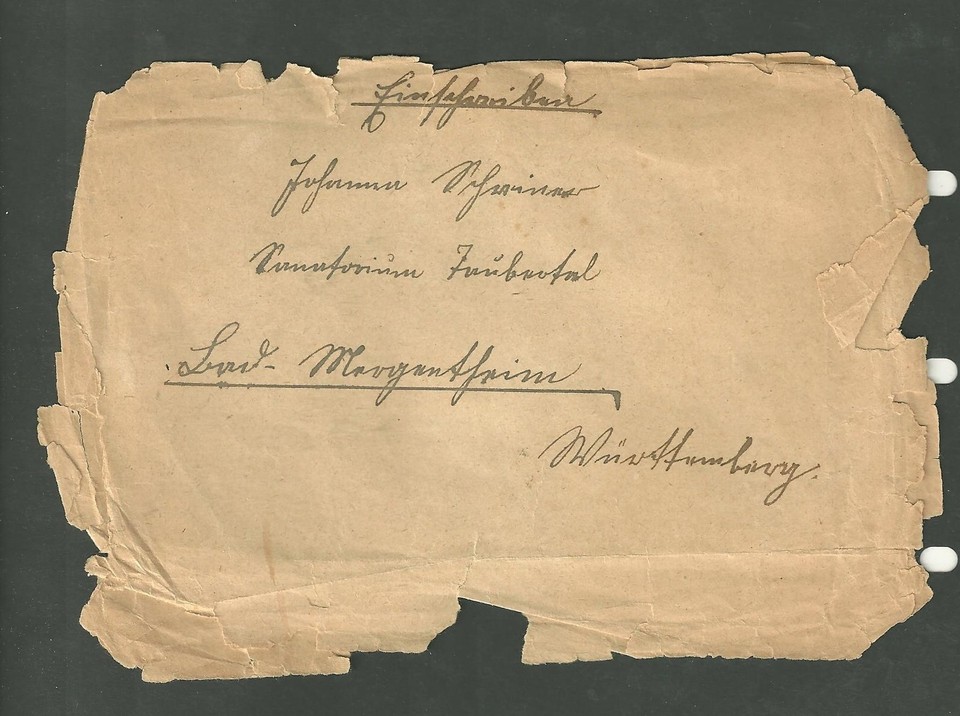 Einschreiben
Johanna Schriner
Sanatorium Taubertal
Bad-Mergentheim
Württemberg.